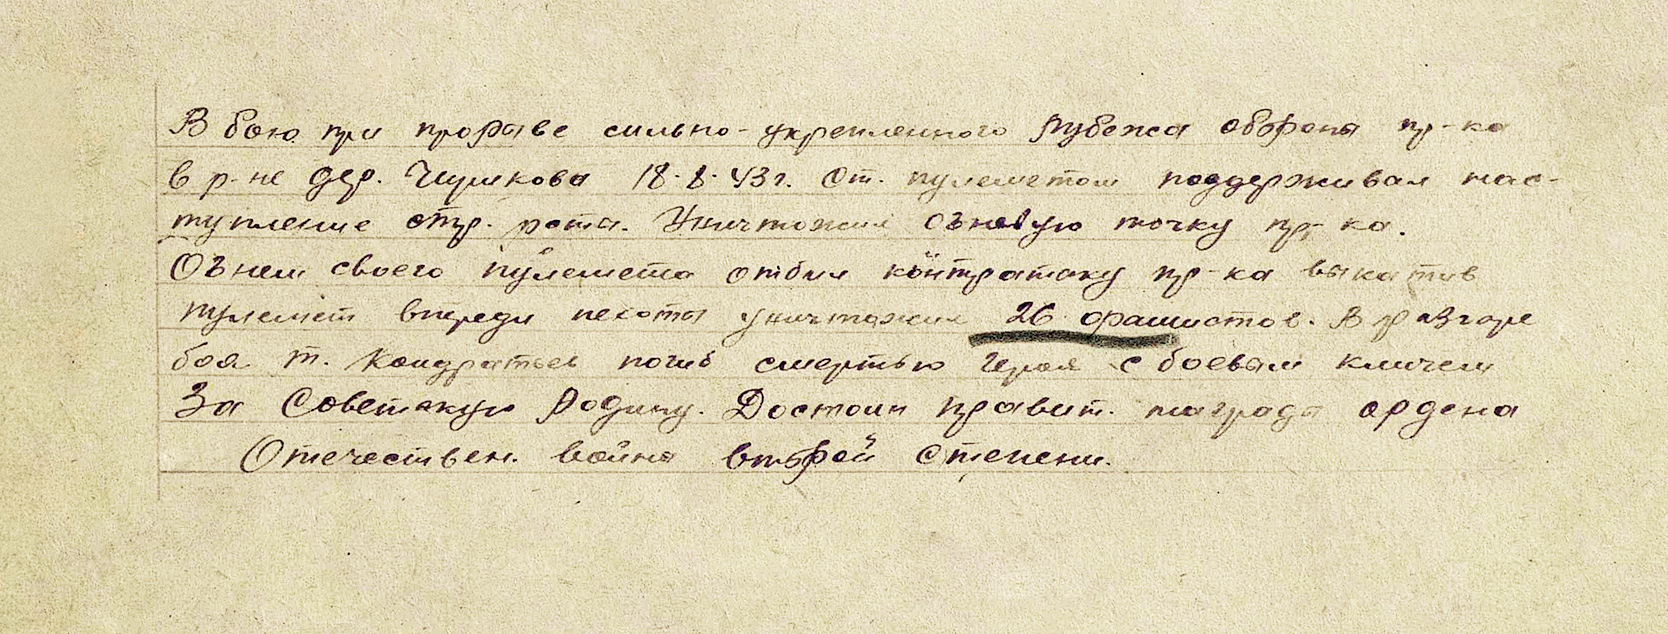 В бою при прорыве сильно-укрепленного рубежа обороны пр-ка
в р-не дер. Чушкова 18.8.43г. Ст. пулеметом поддерживал нас-
тупление стр. роты. Уничтожил огневую точку пр-ка.
Огнем своего пулемета отбил контратаку пр-ка выкатив
пулемет впереди пехоты уничтожил 26 фрашистов. В разгоре
боя т. Кондратьев погиб смертью героя с боевым кличем
За Советскую Родину. Достоин правит. награды ордена
Отечествен. войны второй степени.